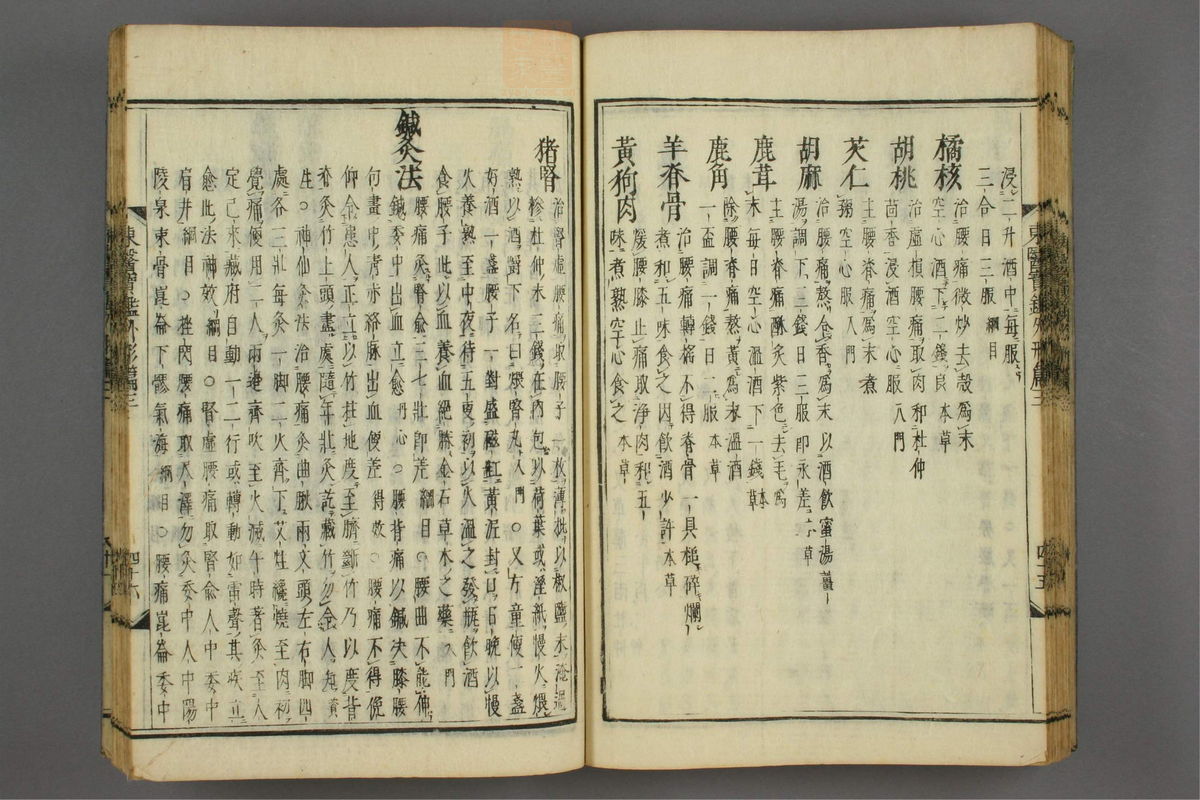 浸二升酒中每服
三合日三服 綱目
橘核 治腰痛微炒去殼爲末
空心酒服二錢良 本草
胡桃 治虛損腰痛取肉和杜仲
茴香浸酒空心服 入門
芡仁 主腰脊痛爲末煮
粥空心服 入門
胡麻 治腰痛熬令香爲末以酒飮蜜湯薑
湯調下三錢日三服卽永差 本草
鹿茸 主腰脊痛酥灸紫色去毛爲
末每日空心溫酒下一錢 本草
鹿角 除腰脊痛熬黃爲末溫酒
一盃調一錢日二服 本草
羊脊骨 治腰痛轉搖不得脊骨一具槌碎爛
煮和五味食之因飮酒少許 本草
黃狗肉 煖腰膝止痛取淨肉和五
味煮熟空心食之 本草
東醫寶鑑外形篇三 四十五
猪腎 治腎虛腰痛取腰子一枚薄批以椒鹽末淹過
摻杜仲末三錢在內包以荷葉或溼紙慢火煨
熟以酒嚼下名曰煨腎丸 入門 ○又方童便一盞
好酒一盞腰子一對盛磁缸黃泥封口日晚以慢
火養熟至中夜待五更初以火溫之發甁飮酒
食腰子此以血養血絕勝金石草木之藥 入門
鍼灸法 腰痛灸腎兪三七壯卽差 綱目 ○腰曲不能伸
鍼委中出血立愈 丹心 ○腰背痛以鍼決膝腰
句畫中靑赤絡脉出血便差 得效 ○腰痛不得俛
仰令患人正立以竹柱地度至臍斷竹乃以度背
脊灸竹上頭盡處隨年壯灸訖藏竹勿令人知 資
生 ○神仙灸法治腰痛灸曲䐐兩文頭左右脚四
處各三壯每灸一脚二火齊下艾炷纔燒至肉初
覺痛便用二人兩邊齊吹至火滅午時著灸至人
定已來藏府自動一二行或轉動如雷聲其疾立
愈此法神效 綱目 ○腎虛腰痛取腎兪人中委中
肩井 綱目 ○挫閃腰痛取尺澤勿灸委中人中陽
陵泉束骨崑崙下髎氣海 綱目 ○腰痛崑崙委中
東醫寶鑑外形篇三 四十六